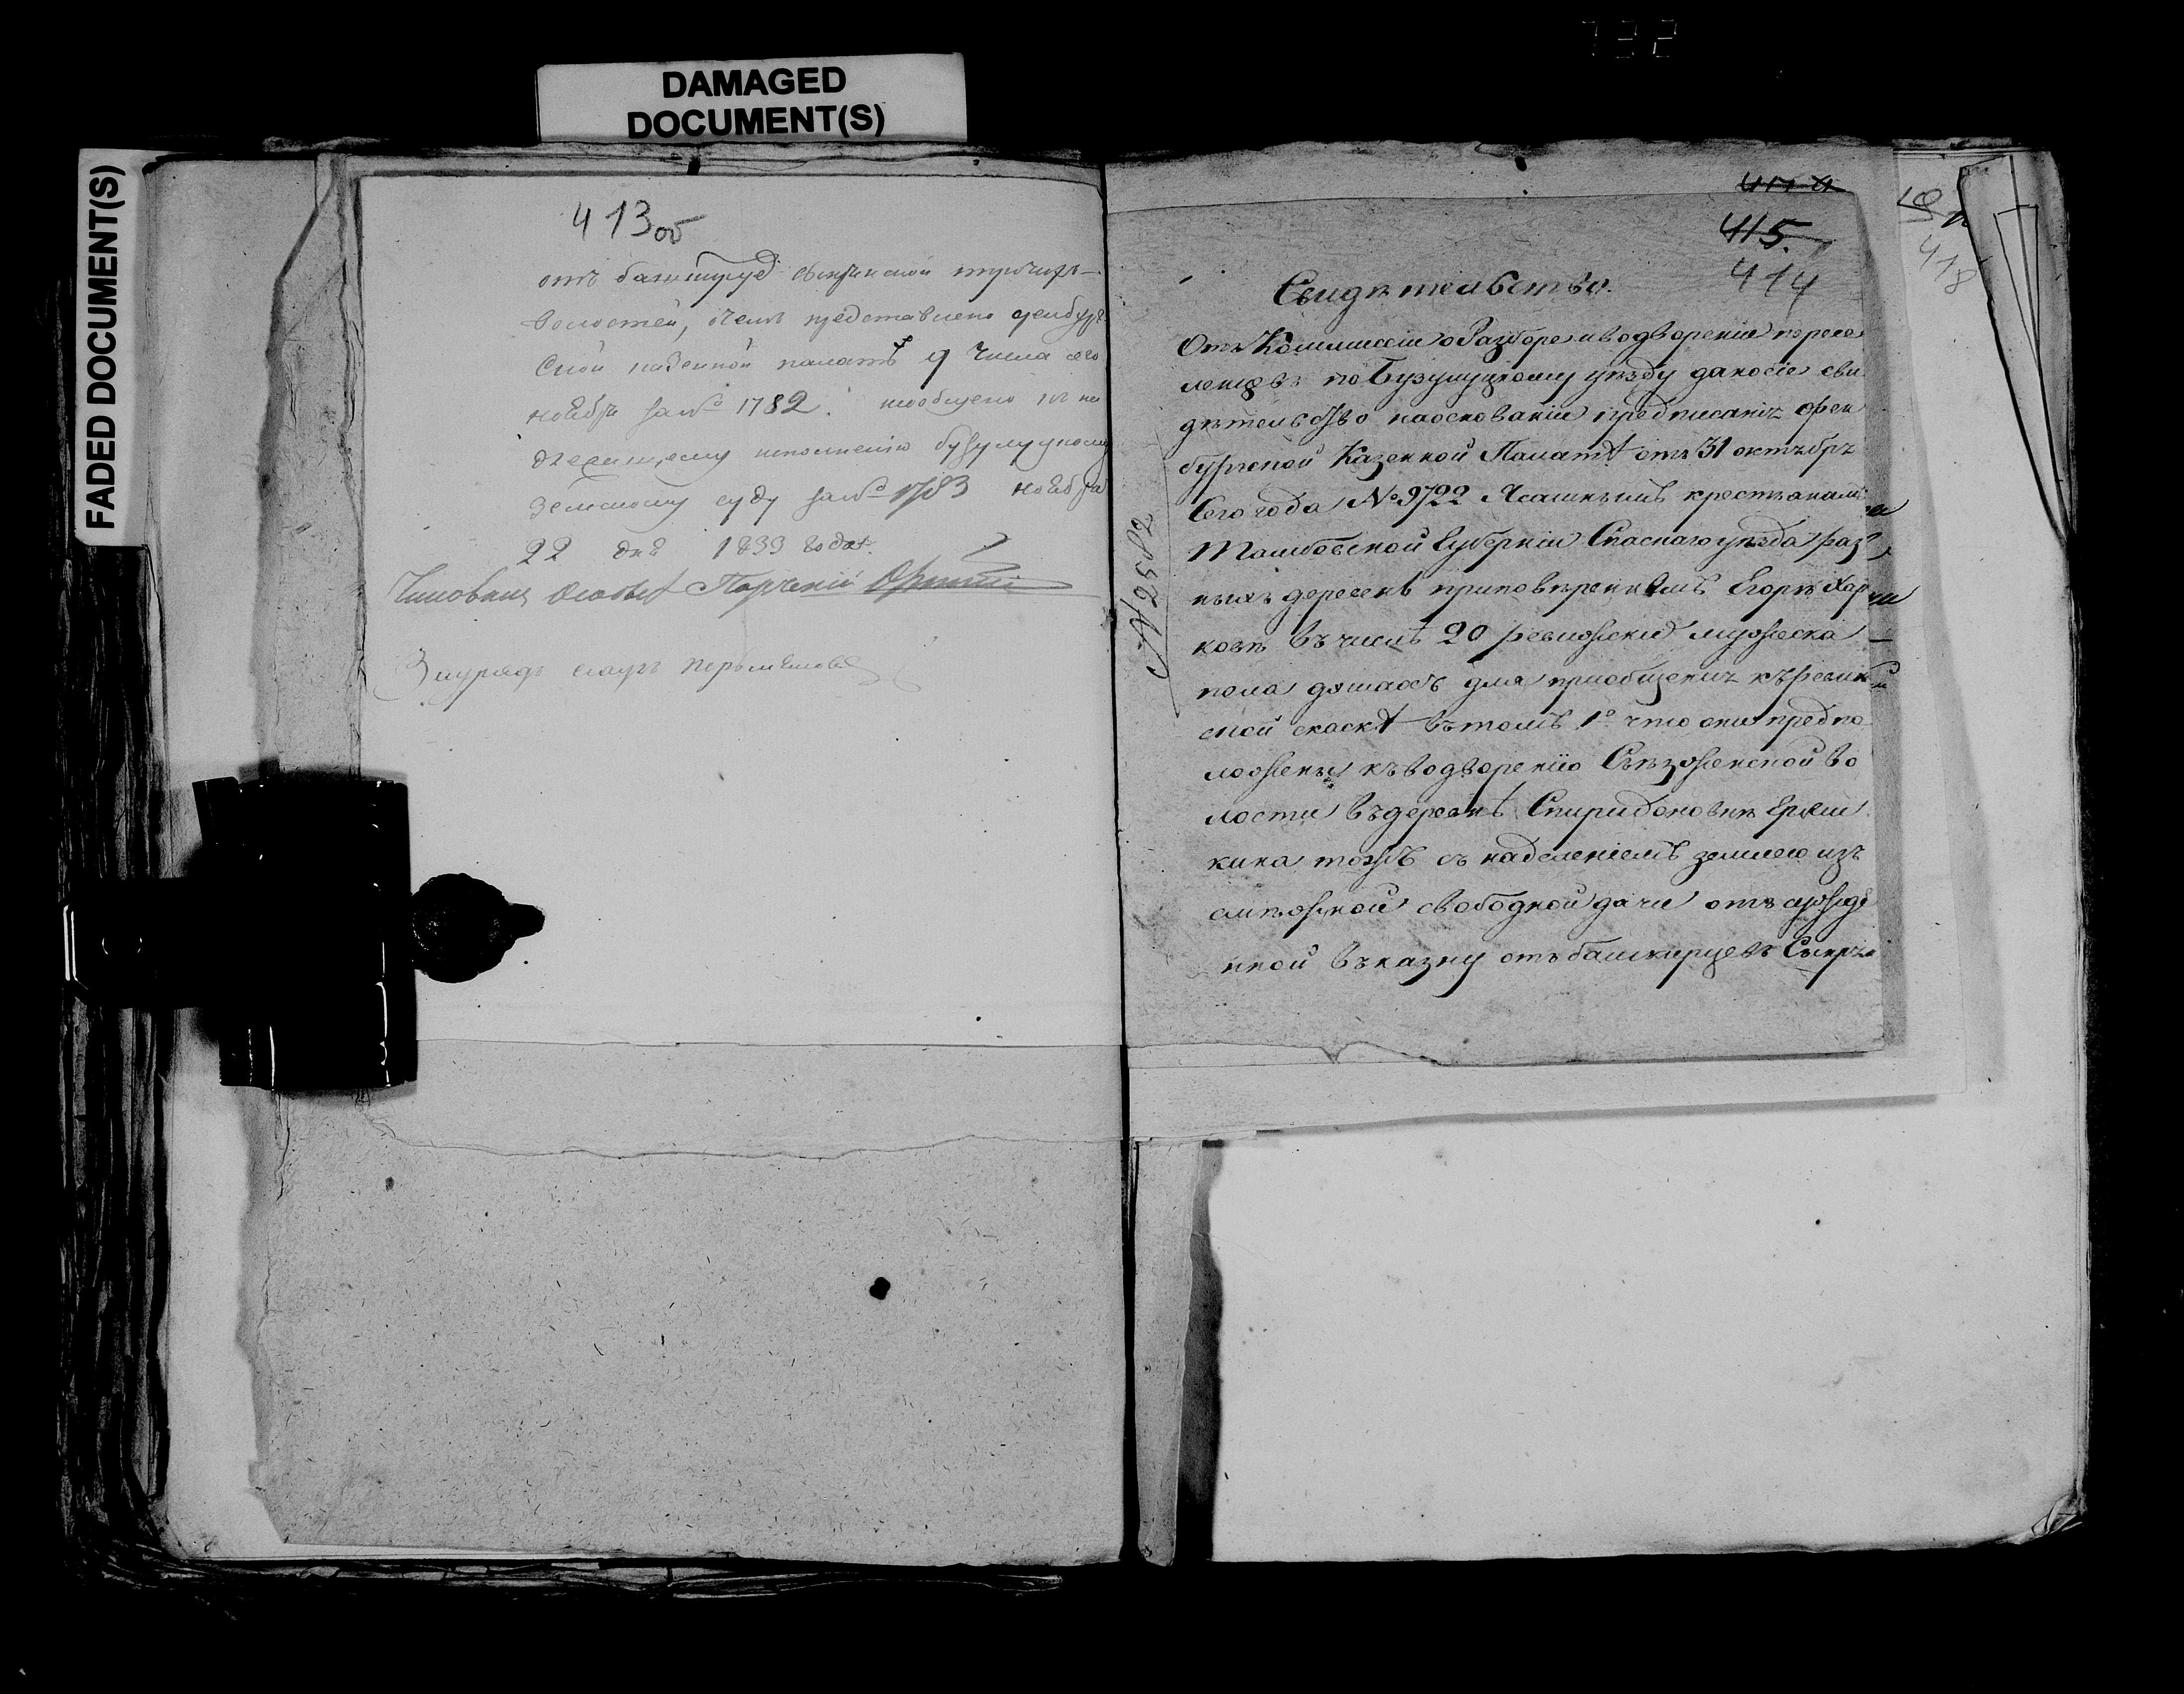 DAMAGED
DOCUMENT(S)
FADED DOCUMENT(S)
413 об
отъ башкирцъ
волостей, о чемъ представлено оренбург
ской казенной палатѣ 9 числа сего
ноября за № 1782. и сообщено къ на
длежащему исполненію бузулуцкому
земскому суду за № 1783 ноября
22 дня 1833 года.
Чиновникъ Особыхъ Порученій
Заурядъ есаулъ
415.
414
418
№ 2582
Свидѣтельство.
Отъ Коммисіи о Разборе и водвореніи пересе
ленцовъ по Бузулуцкому уѣзду дано сіе сви
дѣтельство на основаніи предписанія Орен
бургской Казенной Палаты отъ 31 октября
Сего года № 9722 Ясашнымъ крестьянамъ
Тамбовской Губерніи Спаскаго уѣзда раз
ныхъ деревень при повѣренномъ Егорѣ Хар
ковѣ въ числѣ 20 ревижскихъ мужеска
пола душахъ для пріобщенія къ ревиж
ской скаскѣ въ томъ 1º что они предпо
ложены къ водворенію Съѣзженской во
лости въ деревнѣ Спиридоновкѣ Ерзи
кина тожъ съ наделеніемъ землею изъ
смѣжной свободной дачи отсужде
нной въ казну отъ башкирцевъ